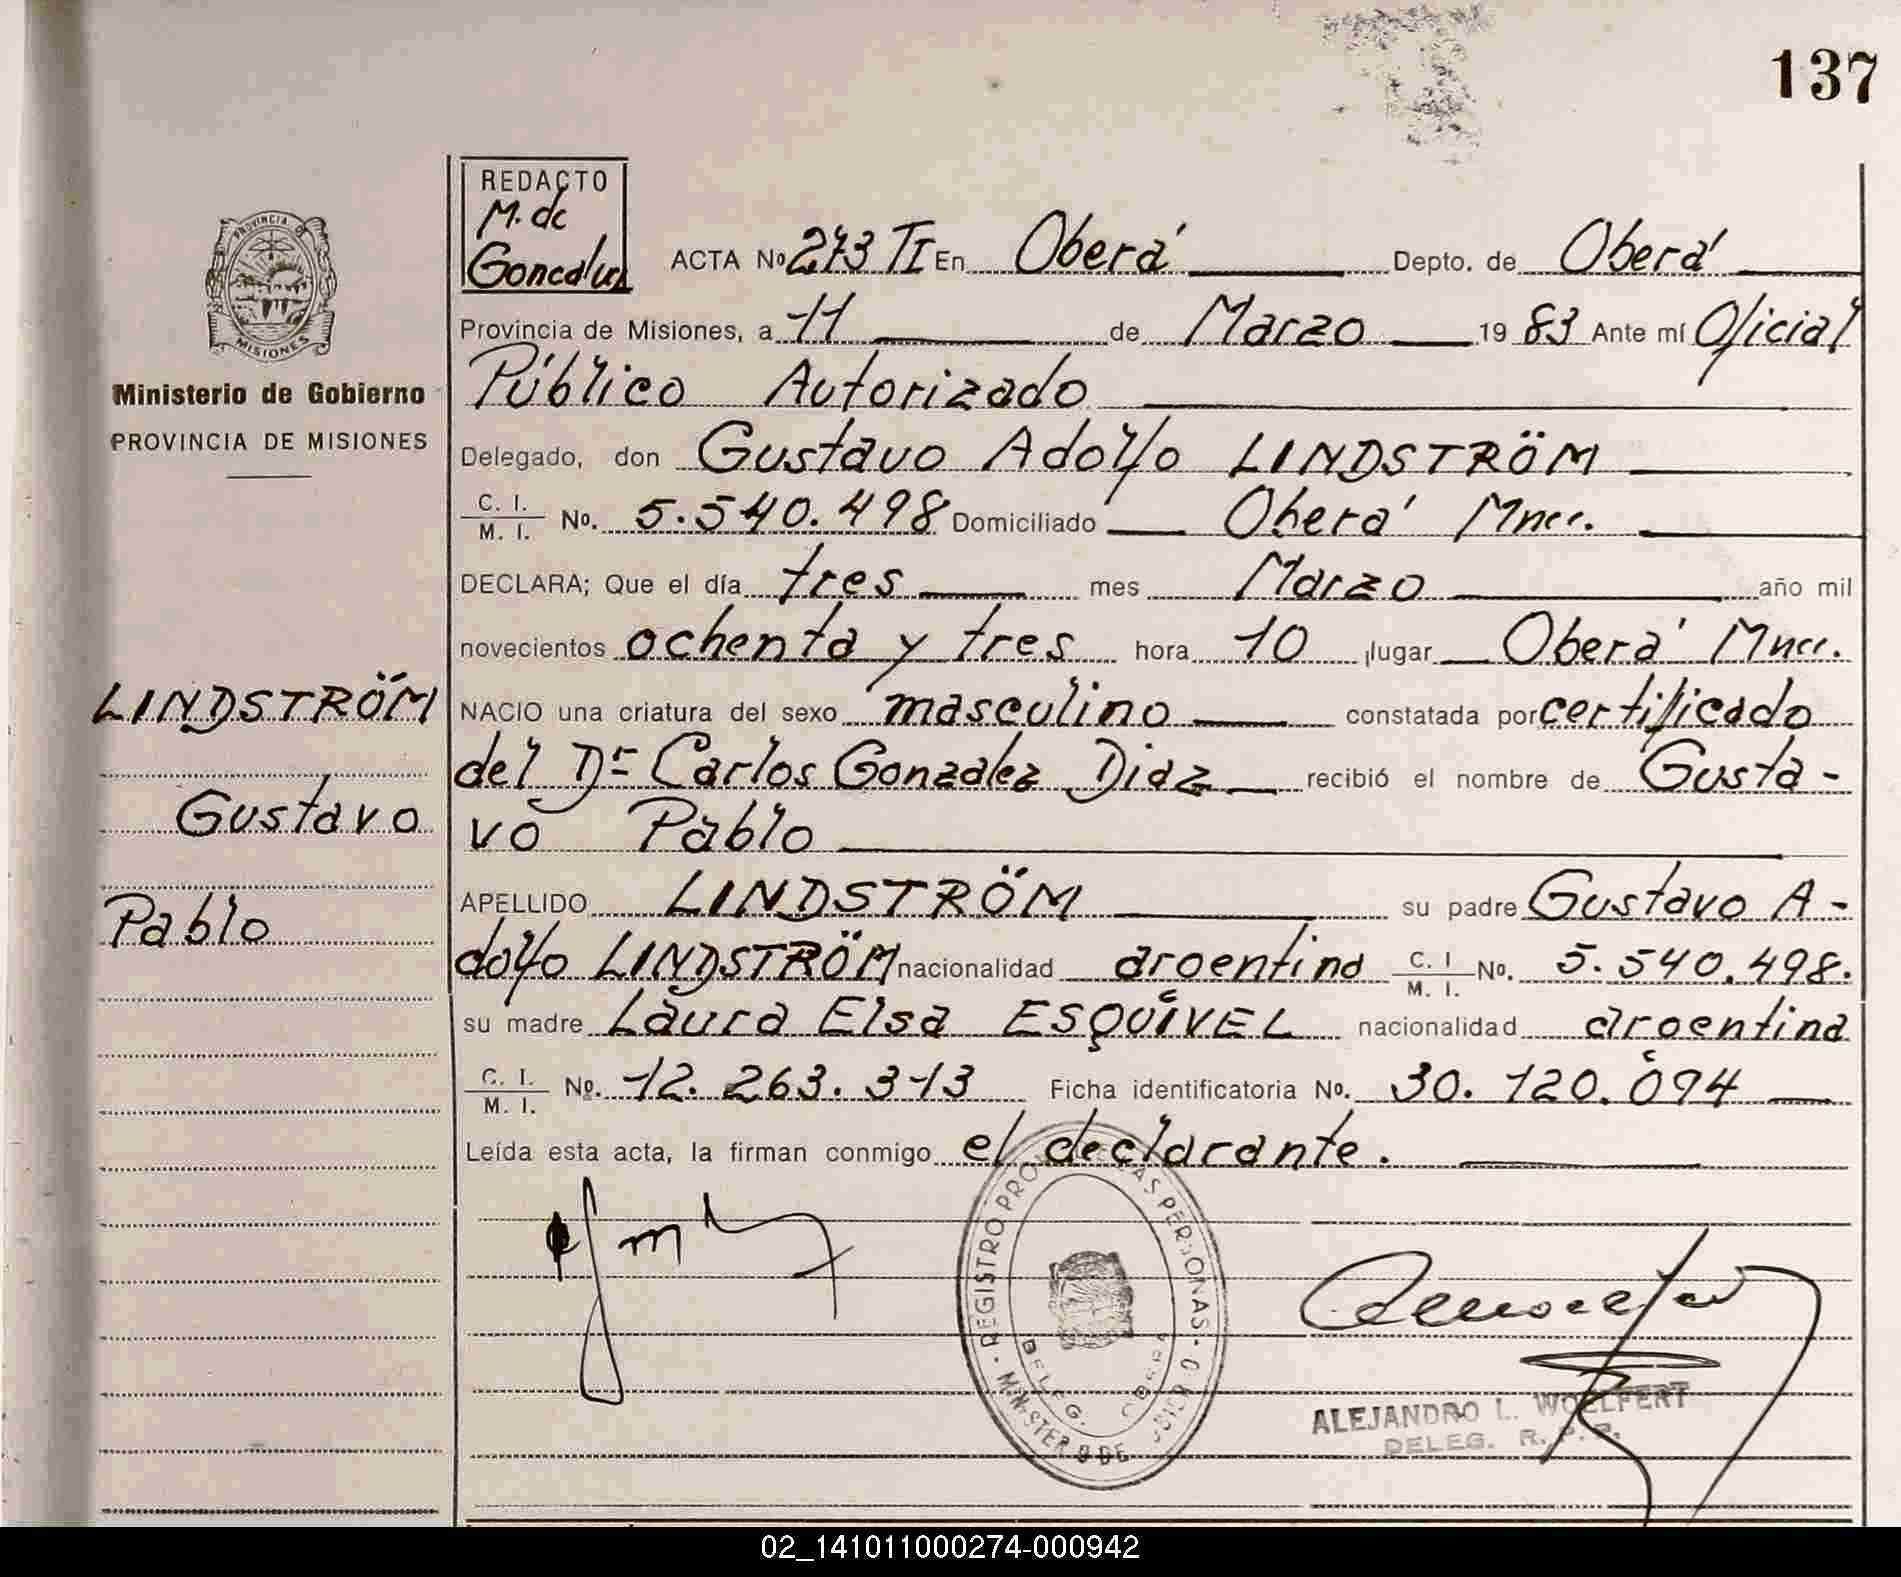 137
REDACTO
M. de
Goncalvez
ACTA Nº 273 TI En Oberá Depto. de Oberá
Provincia de Misiones, a 11 de Marzo 19 83 Ante mí Oficial
Público Autorizado
Delegado, don Gustavo Adolfo LINDSTRÖM
C. I.
M. I. No. 5.540.498 Domiciliado Oberá Mnes.
DECLARA; Que el día tres mes Marzo año mil
novecientos ochenta y tres hora 10 lugar Oberá Mnes.
NACIO una criatura del sexo masculino constatada por certificado
del Dr Carlos Gonzalez Diaz recibió el nombre de Gusta-
vo Pablo
APELLIDO LINDSTRÖM su padre Gustavo A-
dolfo LINDSTRÖM nacionalidad argentino C. I
M. I. No. 5.540.498.
su madre Laura Elsa ESQUIVEL nacionalidad argentina
C. I.
M. I. No. 12.263.313 Ficha identificatoria No. 30.120.094
Leída esta acta, la firman conmigo el declarante.
PROVINCIA DE
MISIONES
Ministerio de Gobierno
PROVINCIA DE MISIONES
LINDSTRÖM
Gustavo
Pablo
REGISTRO PROV. DE LAS PERSONAS
DELEG.
ALEJANDRO L. WOELFERT
DELEG. R. P. P.
02_141011000274-000942